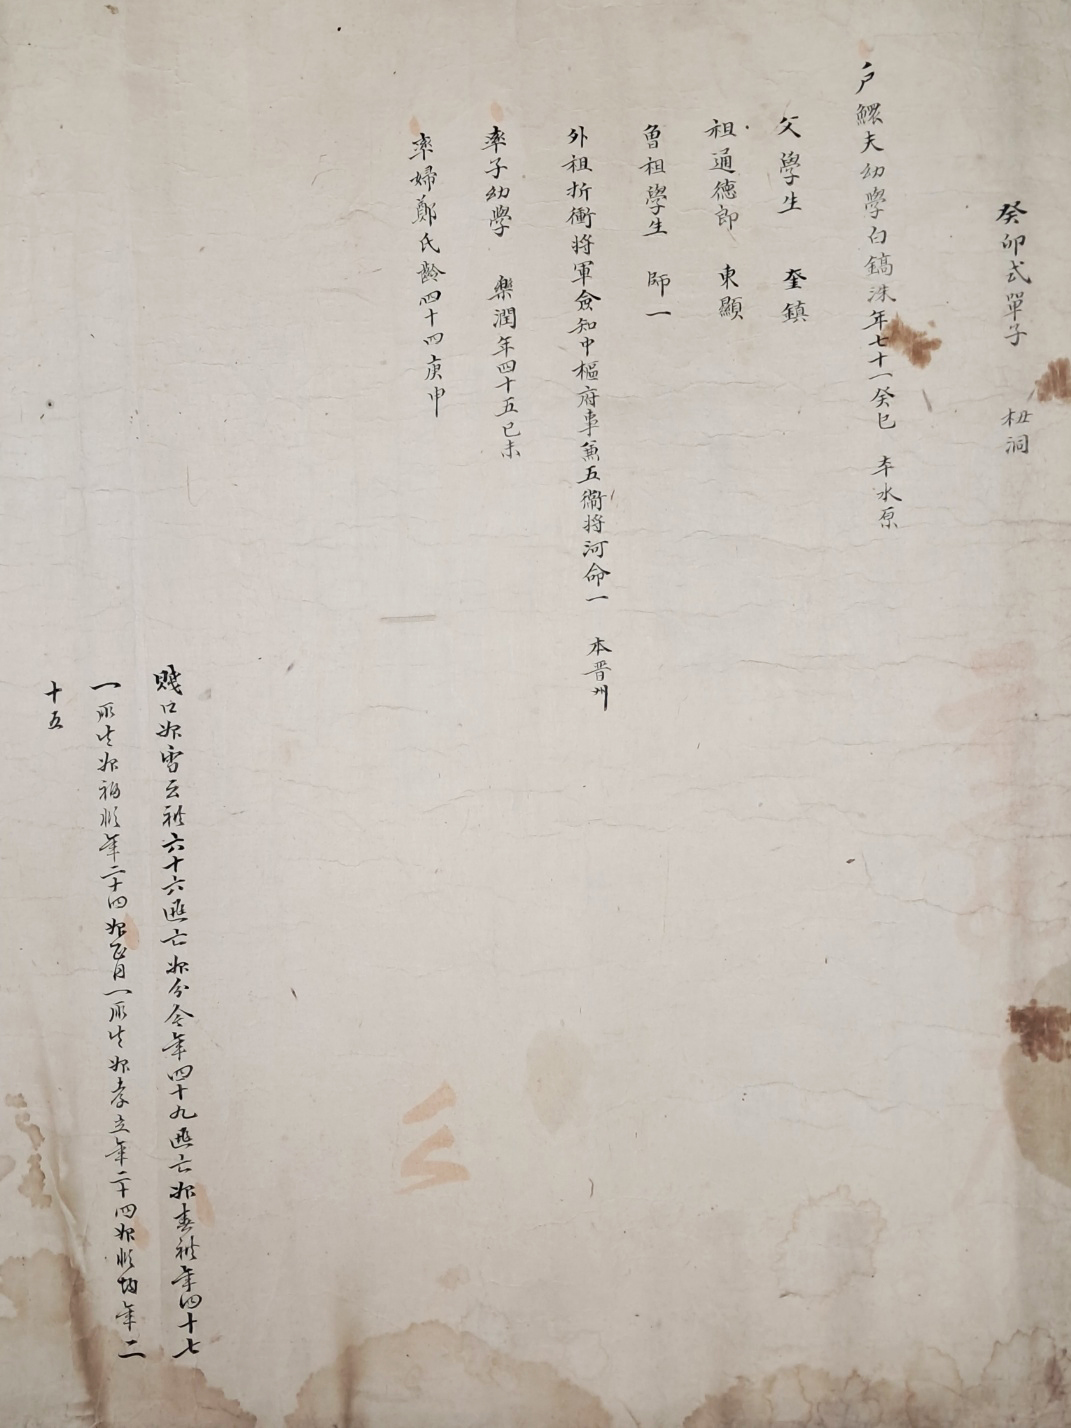 癸卯式單子 杻洞
戶鰥夫幼學白鎬洙年七十一癸巳 本水原
父學生 奎鎮
祖通德郎 東顯
曾祖學生 師一
外祖折衝將軍僉知中樞府事兼五衛將河命一 本晋州
率子幼學 樂潤年四十五己未
率婦鄭氏齡四十四庚申
賤口婢雪云禮六十六逃亡婢分今年四十九逃亡婢春禮年四十七
一所生婢福順年二十四婢正月一所生婢孝立年二十四婢順 年二
十五